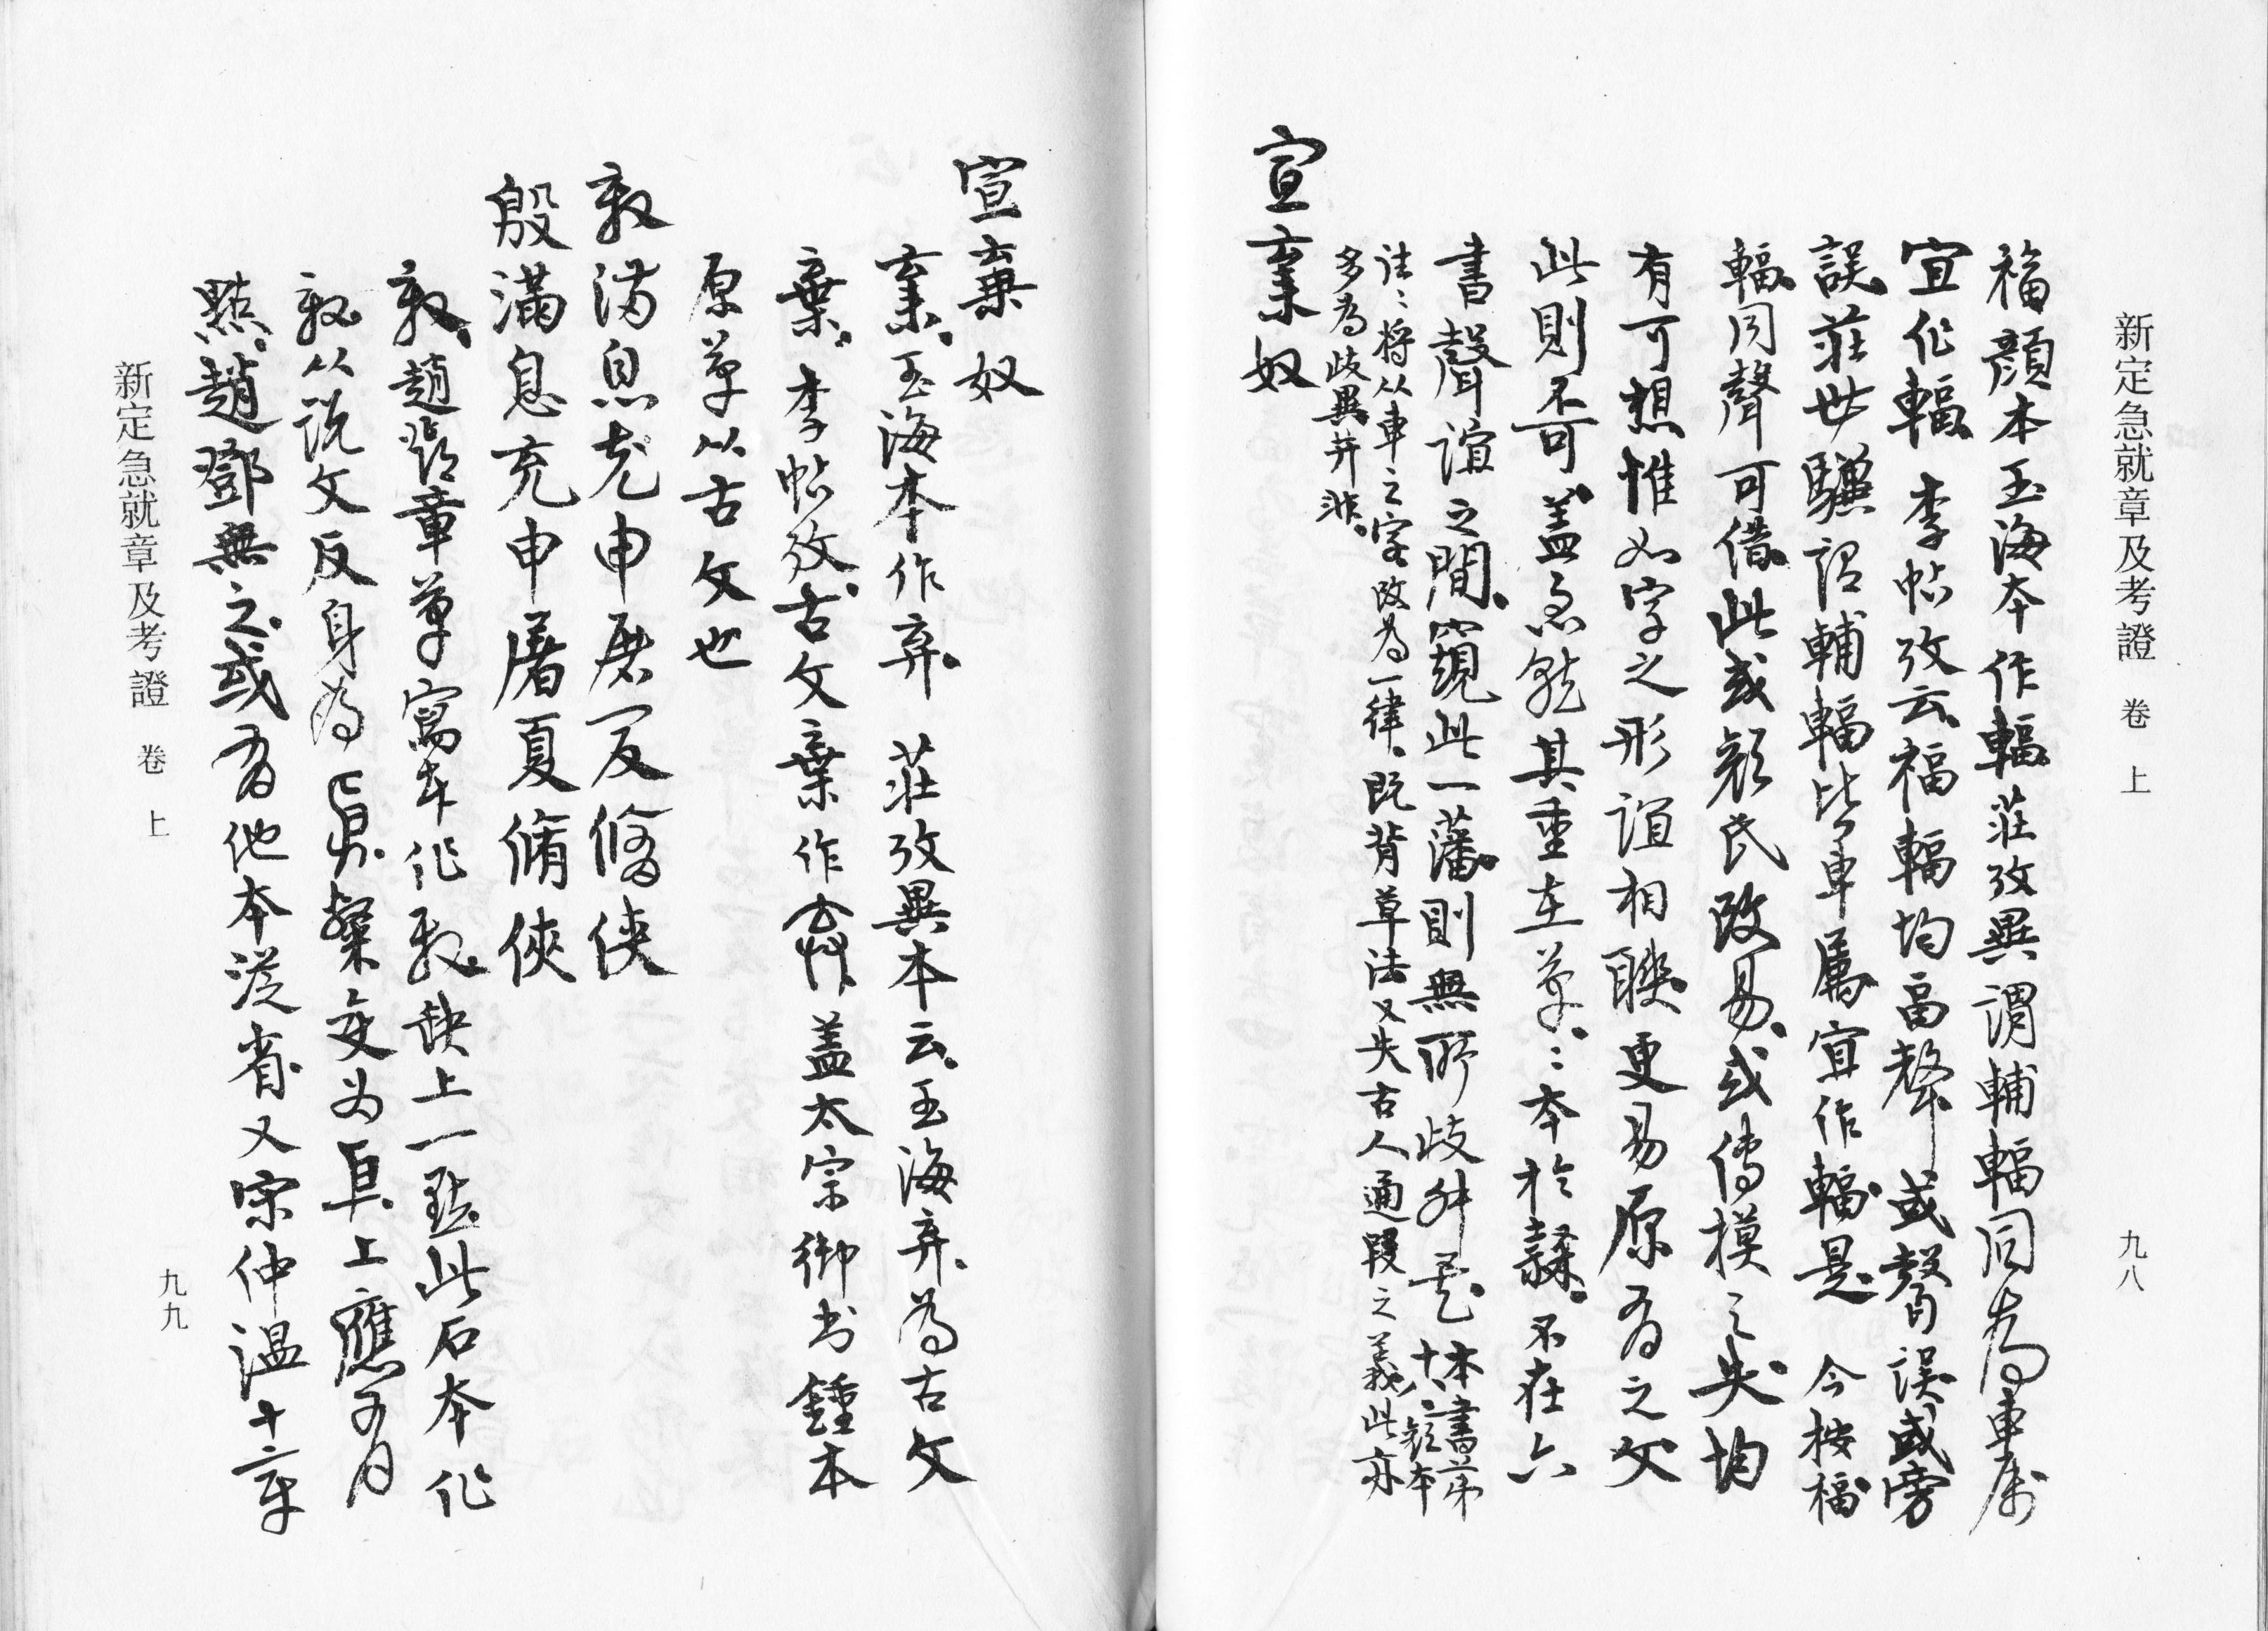 新定急就章及考證 卷上 九八
福顏本玉海本作輻莊攷異謂輔輻同為車屬
宜作輻 李帖攷云福輻均畐聲或聲誤或旁
誤莊世驥謂輔輻皆車屬宜作輻是 今按福
輻同聲可借此或顏氏改易或傳模之失均
有可想惟如字之形誼相聯更易原有之文
此則不可蓋急就其重在草〻本於隸不在六
書聲誼之間窺此一藩則無所歧舛矣 本書第
十八顏本
往〻將从車之字改為一律既背草法又失古人通叚之義此亦
多為歧異并非
宣棄奴
宣棄奴
棄玉海本作弃 莊攷異本云玉海弃為古文
棄 李帖攷古文棄作 蓋太宗御书鍾本
原草从古文也
殷滿息充申屠夏脩俠
殷滿息充申屠夏脩俠
殷趙皆章草寫本作殷缺上一點此石本作
殷从説文反身為㐆縏变为㐆上應有
點趙鄧無之或有他本從省又宋仲温十六章
新定急就章及考證 卷上 九九